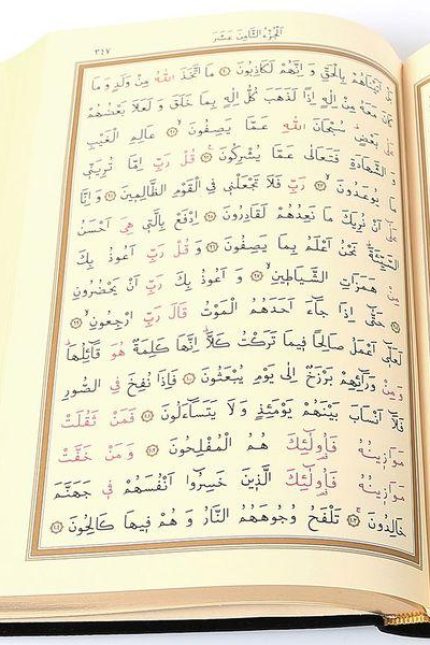 اَلْجُزْءُ الثَّامِنَ عَشَرَ
٣٤٧
بَلْ اَتَيْنَاهُمْ بِالْحَقِّ وَ اِنَّهُمْ لَكَاذِبُونَ ﴿٩٠﴾ مَا اتَّخَذَ اللّٰهُ مِنْ وَلَدٍ وَ مَا
كَانَ مَعَهُ مِنْ اِلٰهٍ اِذًا لَذَهَبَ كُلُّ اِلٰهٍ بِمَا خَلَقَ وَ لَعَلَا بَعْضُهُمْ
عَلٰى بَعْضٍ سُبْحَانَ اللّٰهِ عَمَّا يَصِفُونَ ﴿٩١﴾ عَالِمِ الْغَيْبِ
وَ الشَّهَادَةِ فَتَعَالٰى عَمَّا يُشْرِكُونَ ﴿٩٢﴾ قُلْ رَبِّ اِمَّا تُرِيَنِّي
مَا يُوعَدُونَ ﴿٩٣﴾ رَبِّ فَلَا تَجْعَلْنِي فِي الْقَوْمِ الظَّالِمِينَ ﴿٩٤﴾ وَ اِنَّا
عَلٰٓى اَنْ نُرِيَكَ مَا نَعِدُهُمْ لَقَادِرُونَ ﴿٩٥﴾ اِدْفَعْ بِالَّتِي هِيَ اَحْسَنُ
السَّيِّئَةَ نَحْنُ اَعْلَمُ بِمَا يَصِفُونَ ﴿٩٦﴾ وَ قُلْ رَبِّ اَعُوذُ بِكَ
مِنْ هَمَزَاتِ الشَّيَاطِينِ ﴿٩٧﴾ وَ اَعُوذُ بِكَ رَبِّ اَنْ يَحْضُرُونِ
﴿٩٨﴾ حَتّٰٓى اِذَا جَٓاءَ اَحَدَهُمُ الْمَوْتُ قَالَ رَبِّ ارْجِعُونِ ﴿٩٩﴾
لَعَلِّٓي اَعْمَلُ صَالِحًا فِيمَا تَرَكْتُ كَلَّا اِنَّهَا كَلِمَةٌ هُوَ قَٓائِلُهَا
وَ مِنْ وَرَٓائِهِمْ بَرْزَخٌ اِلٰى يَوْمِ يُبْعَثُونَ ﴿١٠٠﴾ فَاِذَا نُفِخَ فِي الصُّورِ
فَلَٓا اَنْسَابَ بَيْنَهُمْ يَوْمَئِذٍ وَ لَا يَتَسَٓاءَلُونَ ﴿١٠١﴾ فَمَنْ ثَقُلَتْ
مَوَازِينُهُ فَاُولٰٓئِكَ هُمُ الْمُفْلِحُونَ ﴿١٠٢﴾ وَ مَنْ خَفَّتْ
مَوَازِينُهُ فَاُولٰٓئِكَ الَّذِينَ خَسِرُٓوا اَنْفُسَهُمْ فِي جَهَنَّمَ
خَالِدُونَ ﴿١٠٣﴾ تَلْفَحُ وُجُوهَهُمُ النَّارُ وَ هُمْ فِيهَا كَالِحُونَ ﴿١٠٤﴾